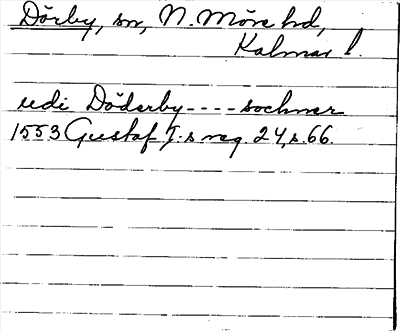 Dörby, sn, N. Möre hd,
Kalmar l.
udi Döderby ---- sochner
1553 Gustaf I:s reg. 24, s. 66.